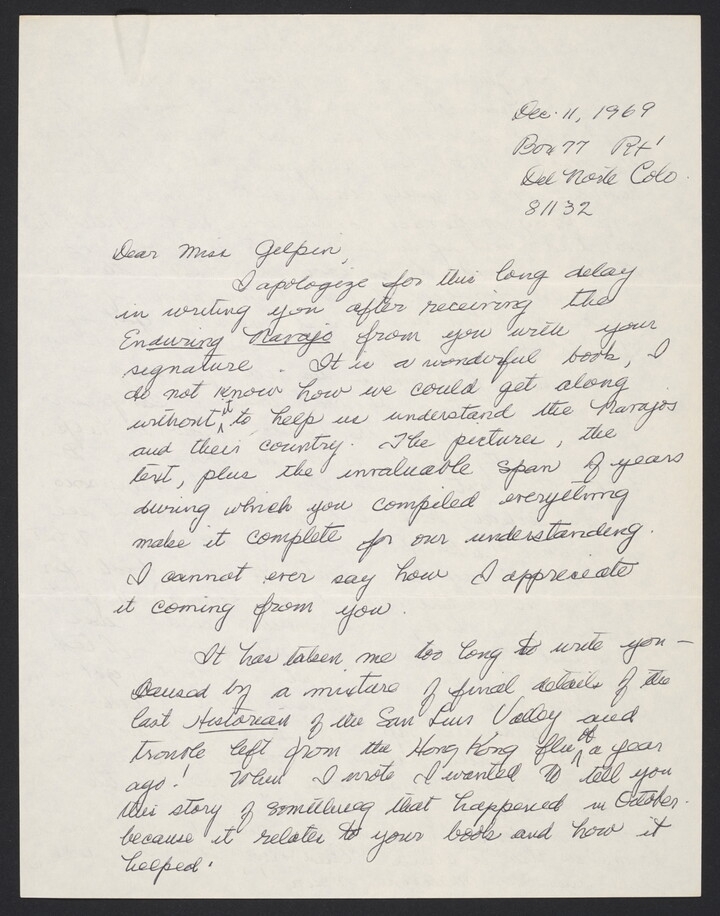 Dec. 11, 1969
Box 77 Rt 1
Del Norte Colo.
81132
Dear Miss Gilpin,
I apologize for this long delay
in writing you after receiving the
Enduring Navajo from you with your
signature. It is a wonderful book, I
do not know how we could get along
without it to help us understand the Navajos
and their country. The pictures, the
text, plus the invaluable span of years
during which you compiled everything
make it complete for our understanding.
I cannot ever say how I appreciate
it coming from you.
It has taken me too long to write you —
caused by a mixture of final details of the
last Historian of the San Luis Valley and
trouble left from the Hong Kong flu of a year
ago! When I wrote I wanted to tell you
this story of something that happened in October.
because it relates to your book and how it
helped.